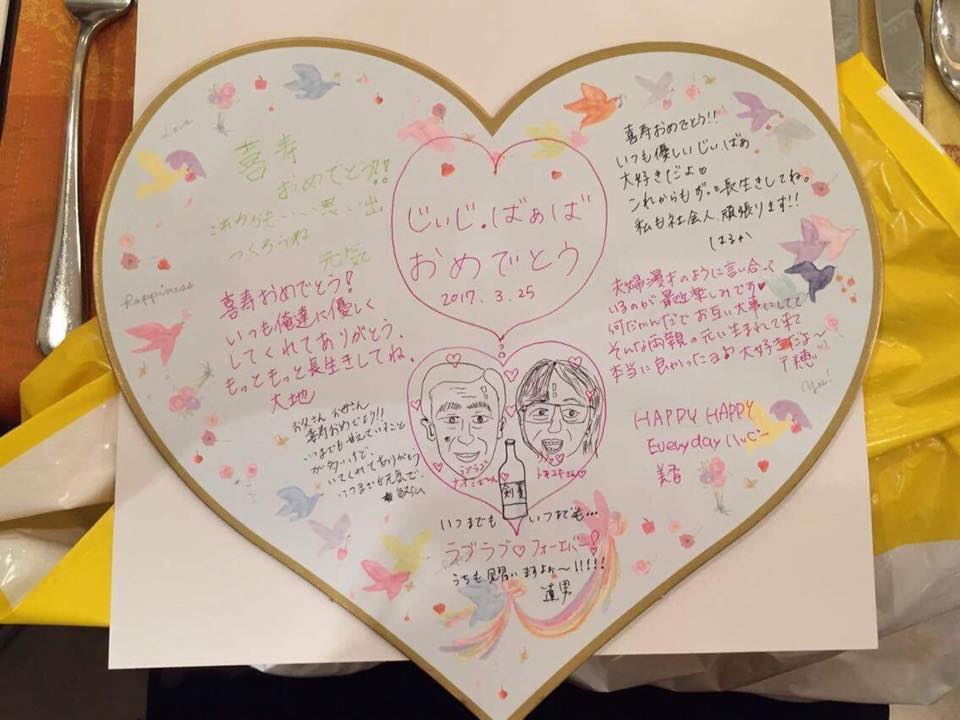 じぃじ・ばぁば
おめでとう
2017.3.25
Love
喜寿
おめでとう!!
これからもいい思い出
つくろうね
元気
Happiness
喜寿おめでとう!
いつも俺達に優しく
してくれてありがとう。
もっともっと長生きしてね。
大地
お父さん お母さん
喜寿おめでとう!!
いつまでも甘えていること
が多いけど、
いてくれてありがとう
いつまでも元気で。
敏弘
喜寿おめでとう!!
いつも優しいじぃばぁ
大好きだよ♡
これからもずっと長生きしてね。
私も社会人頑張ります!!
はるか
夫婦漫才のように言い合って
いるのが最近楽しみです♥
何だかんだでお互い大事にしてて
そんな両親の元に生まれて来て
本当に良かったヨ 大好きだよ〜
千穂
Yes!
HAPPY HAPPY
Everyday ハッピー
美香
ラブラブ
剣菱
いつまでも いつまでも…
ラブラブ♡フォーエバー!
うちも見習いますよぉ〜!!!!!
達男